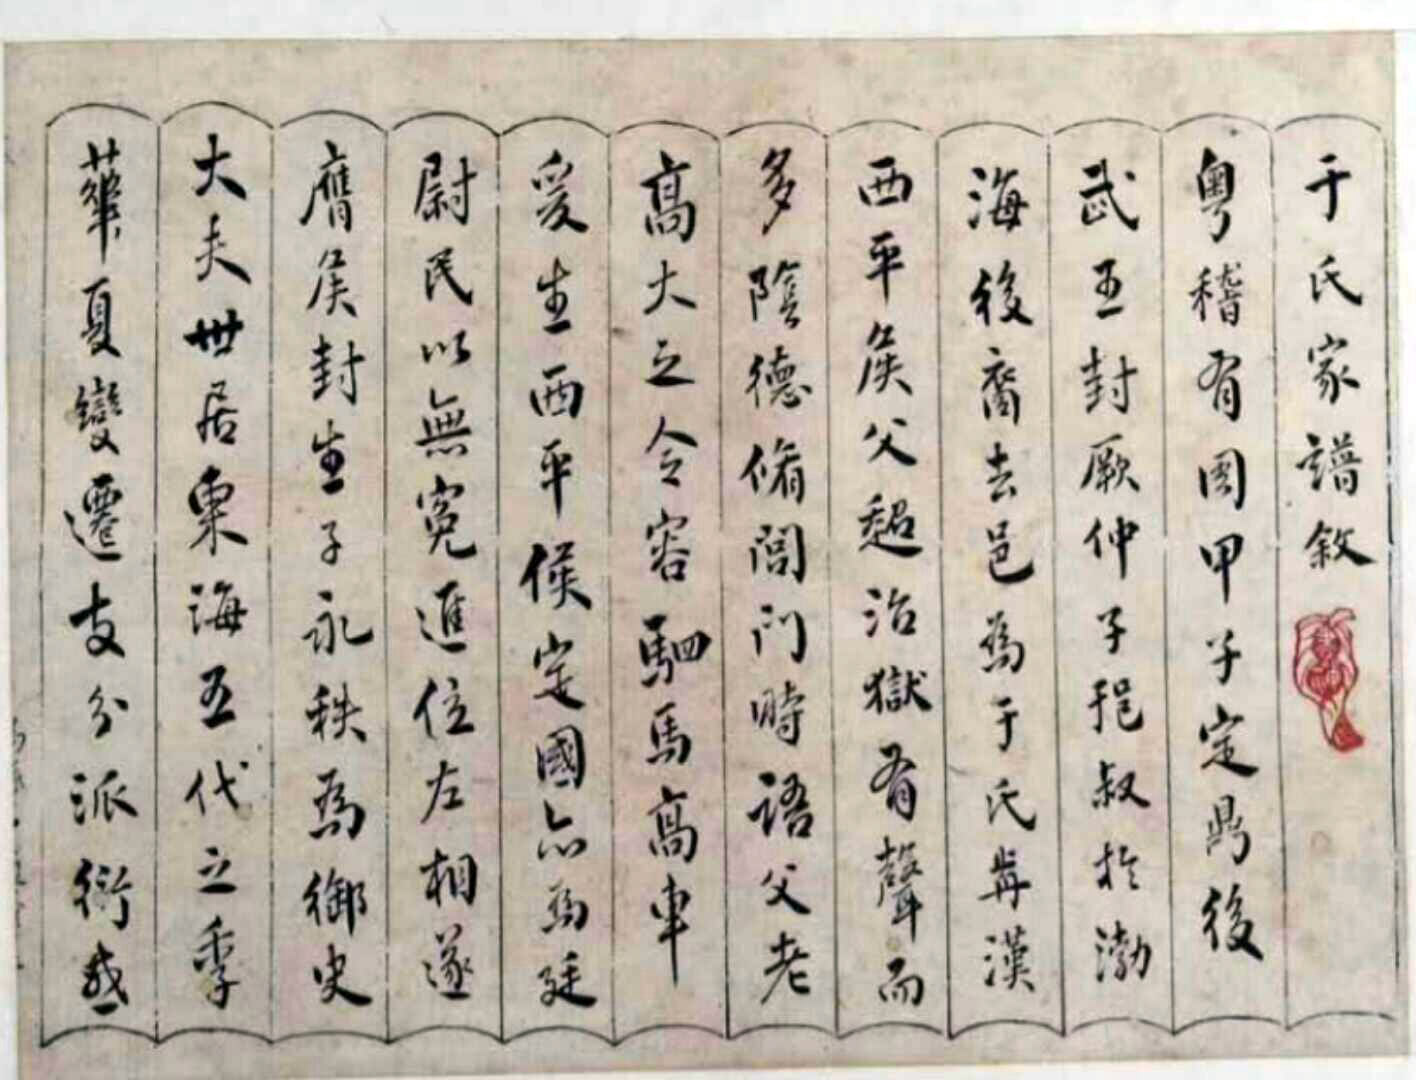 于氏家譜敘
粵稽有國甲子定鼎後
武王封厥仲子挹叔於渤
海後裔去邑為于氏毎漢
西平侯父超治獄有聲而
多陰德脩閭門時語父老
高大之令容駟馬高車
爰生西平侯定國亦為廷
尉民以無冤進位左相遂
膺侯封生子永秩為御史
大夫世居東海五代之季
華夏變遷支分派衍或